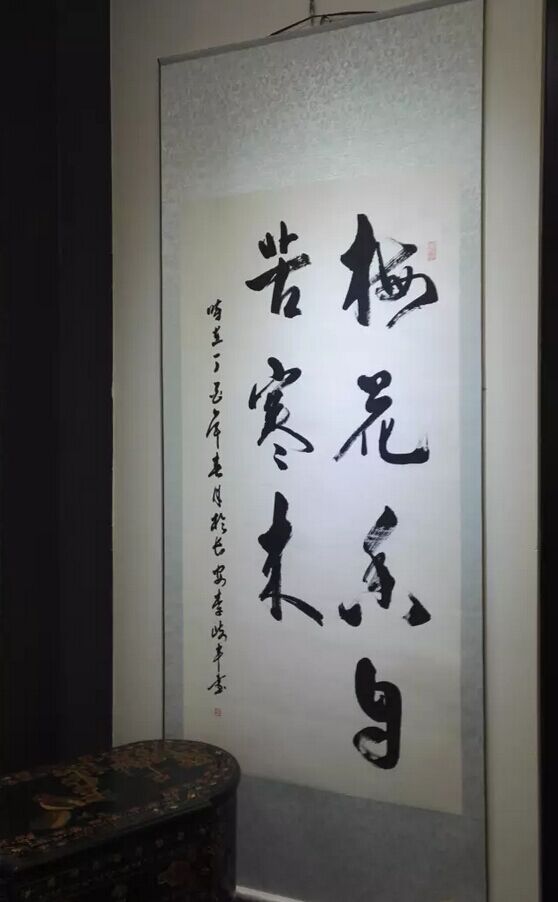 梅花香自
苦寒来
时在丁酉年春月于长安李岐丰书